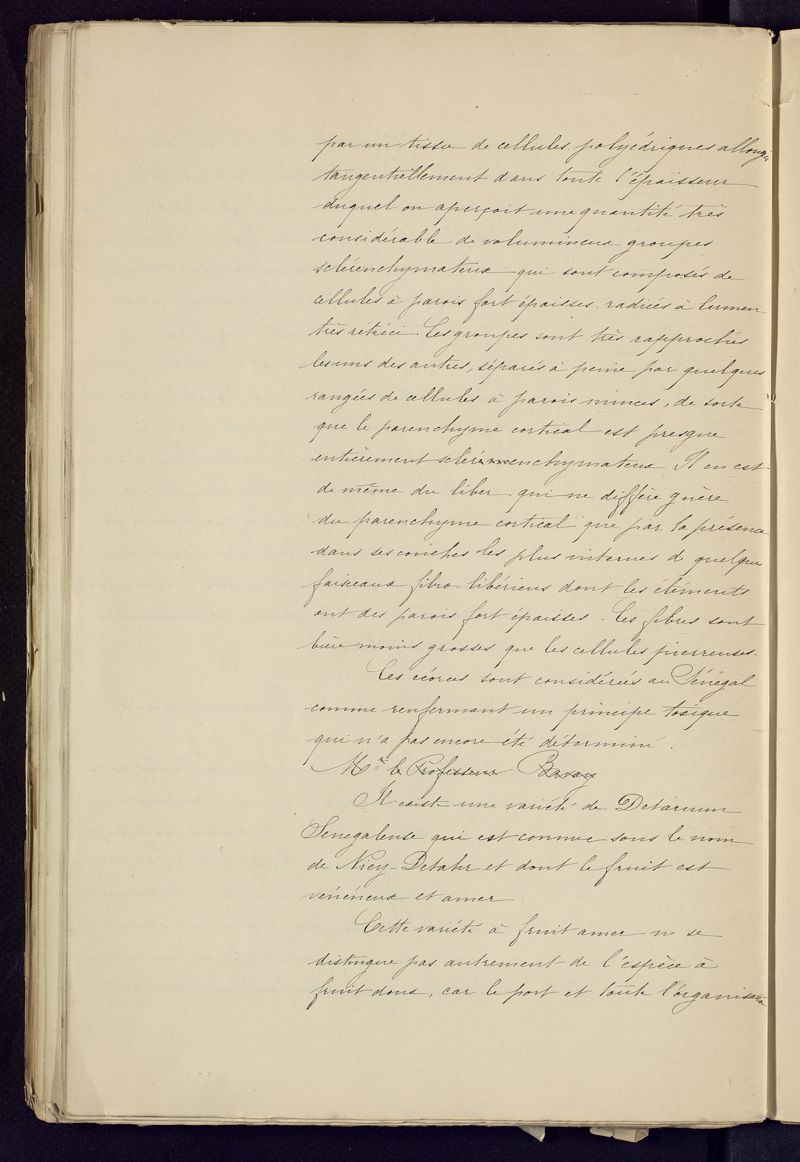 par un tissu de cellules polyédriques allongées
tangentiellement dans toute l'épaisseur
duquel on aperçoit une quantité très
considérable de volumineux groupes
sclérenchymateux qui sont composés de
cellules à parois fort épaisses radiées à lumen
très retréci. Ces groupes sont très rapprochés
les uns des autres, séparés à peine par quelques
rangées de cellules à parois minces, de sorte
que le parenchyme cortical est presque
entièrement sclérenchymateux Il en est
de même du liber qui ne diffère guère
du parenchyme cortical que par la présence
dans ses couches les plus internes de quelques
faisceaux fibro-libériens dont les éléments
ont des parois fort épaisses. Ces fibres sont
bien moins grosses que les cellules pierreuses.
Ces écorces sont considérées au Sénégal
comme renfermant un principe toxique
qui n'a pas encore été déterminé.
Mr le Professeur
Il existe une variété de Detarium
Senegalense qui est connue sous le nom
de Niey-Detahr et dont le fruit est
vénéneux et amer
Cette variété à fruit amer ne se
distingue pas autrement de l'espèce à
fruit doux, car le port et toute l'organisation